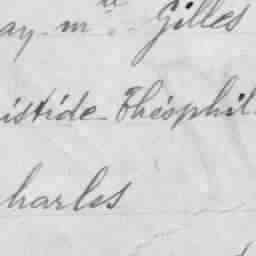 ay. m.lle Gilles
istide Théophil
harles